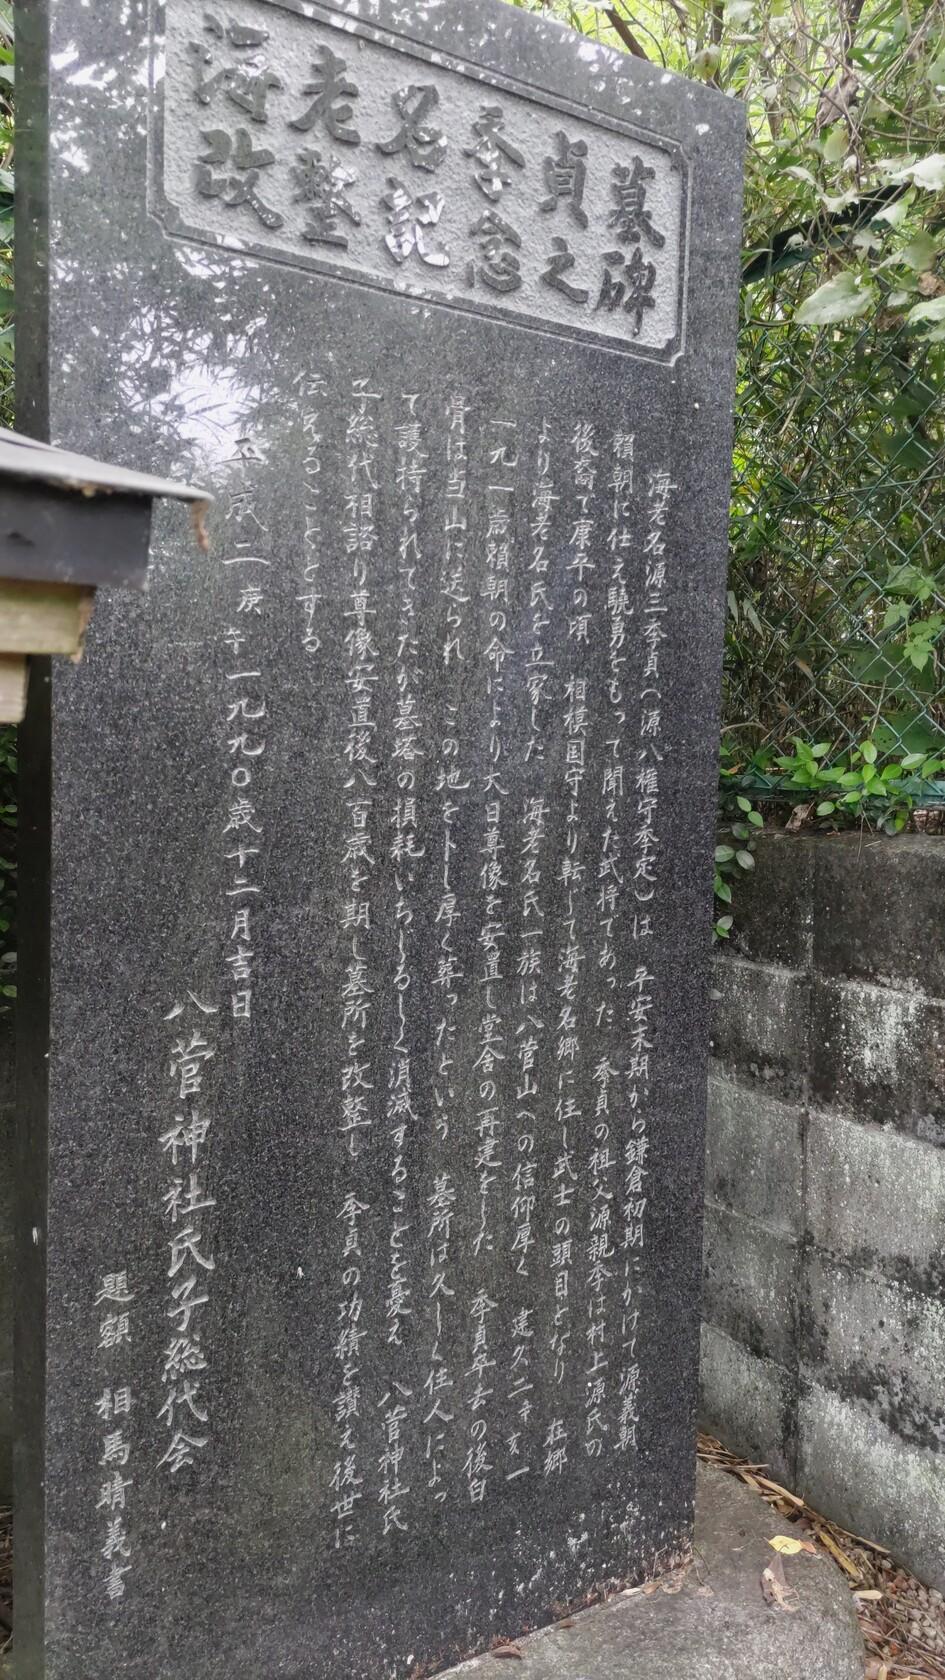 海老名季貞墓
改整記念之碑
海老名源三季貞(源八権守季定)は 平安末期から鎌倉初期にかけて源義朝
頼朝に仕え驍勇をもって聞えた武将であった 季貞の祖父源親季は村上源氏の
後裔で康平の頃 相模国守より転じて海老名郷に住し武士の頭目となり 在郷
より海老名氏を立家した 海老名氏一族は八菅山への信仰厚く 建久二辛亥一
一九一歳頼朝の命により大日尊像を安置し堂舎の再建をした 季貞卒去の後白
骨は当山に送られ この地を卜し厚く葬ったという 墓所は久しく住人によっ
て護持られてきたが墓塔の損耗いちじるしく消滅することを憂え 八菅神社氏
子総代相諮り尊像安置後八百歳を期し墓所を改整し 季貞の功績を讃え後世に
伝えることとする
平成二庚午一九九〇歳十二月吉日
八菅神社氏子総代会
題額 相馬晴義書